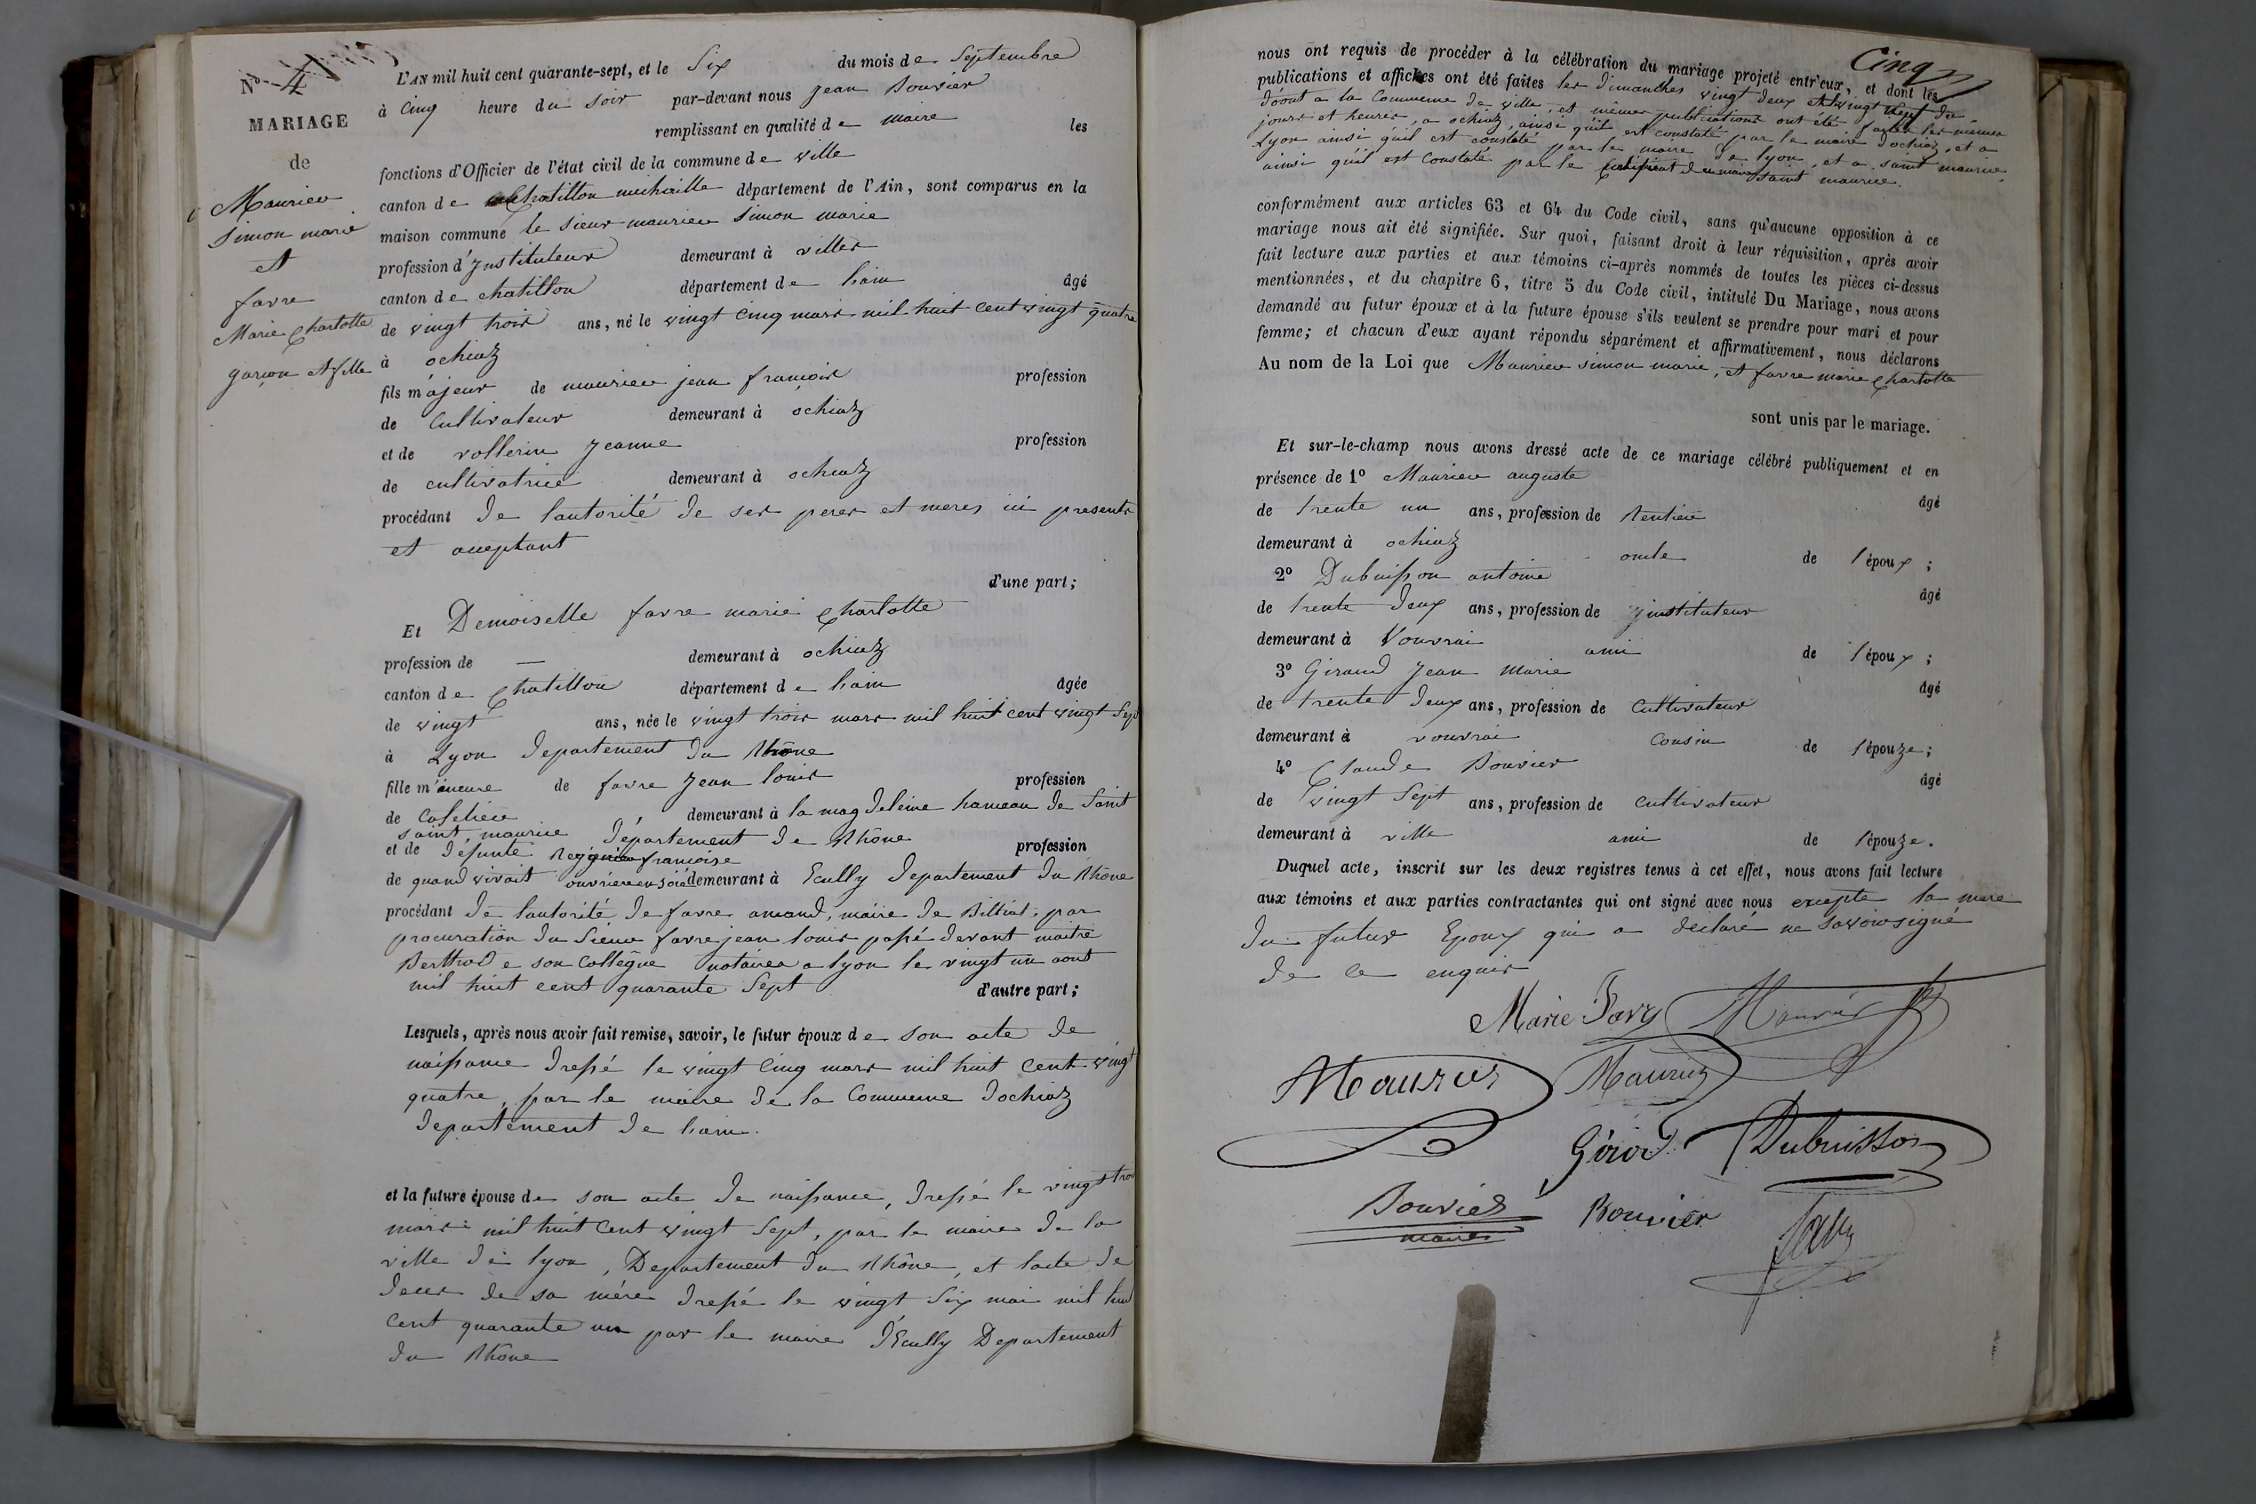 N° 4
MARIAGE
de
Maurier
Simon marie
et
favre
Marie Charlotte
garçon et fille
L'AN mil huit cent quarante-sept, et le Six du mois de Septembre
à Cinq heure du soir par-devant nous jean Bouvier
remplissant en qualité de maire les
fonctions d'Officier de l'état civil de la commune de ville
canton de Chatillon michaille département de l'Ain, sont comparus en la
maison commune le sieur maurier Simon marie
profession d'jnstituteur demeurant à villes
canton de chatillon département de lain âgé
de vingt trois ans, né le vingt Cinq mars mil huit cent vingt quatre
à ochiaz
fils majeur de maurier jean françois profession
de Cultivateur demeurant à ochiaz
et de vollerin jeanne profession
de cultivatrice demeurant à ochiaz
procédant de lautorité de ses peres et meres ici presents
et acceptant
d'une part;
Et Demoiselle favre marie Charlotte
profession de — demeurant à ochiaz
canton de Chatillon département de lain âgée
de vingt ans, née le vingt trois mars mil huit cent vingt Sept
à Lyon departement du Rhône
fille mineure de favre jean louis profession
de Cafetier demeurant à la magdeleine hameau de Saint
saint maurice département de Rhône
et de défunte françoise profession
de quand vivait ouvrière en soie demeurant à Ecully departement du Rhône
procédant de lautorité de favre amand, maire de Billiat, par
procuration du Sieur favre jean louis passé devant maitre
Berthod e son Collegue notaires a lyon le vingt un aout
mil huit cent quarante Sept d'autre part;
Lesquels, après nous avoir fait remise, savoir, le futur époux de son acte de
naissance dressé le vingt Cinq mars mil huit cent vingt
quatre, par le maire de la Commune dochiaz
departement de lain.
et la future épouse de son acte de naissance, dressé le vingt trois
mars mil huit cent vingt Sept, par le maire de la
ville de lyon, Departement du Rhône, et lacte de
deces de sa mère dressé le vingt Six mai mil huit
cent quarante un par le maire d'Ecully Departement
du Rhône
Cinq
nous ont requis de procéder à la célébration du mariage projeté entr'eux, et dont les
publications et affiches ont été faites les dimanches vingt deux et vingt neuf du
d'août a la Commune de ville, et mêmes publications ont été faites les mêmes
jours et heures, a ochiaz, ainsi quil est constaté par le maire dochiaz, et a
Lyon ainsi quil est constaté par le maire de lyon, et a saint maurice,
ainsi quil est Constaté par le Certificat du maire saint maurice.
conformément aux articles 63 et 64 du Code civil, sans qu'aucune opposition à ce
mariage nous ait été signifiée. Sur quoi, faisant droit à leur réquisition, après avoir
fait lecture aux parties et aux témoins ci-après nommés de toutes les pièces ci-dessus
mentionnées, et du chapitre 6, titre 5 du Code civil, intitulé Du Mariage, nous avons
demandé au futur époux et à la future épouse s'ils veulent se prendre pour mari et pour
femme; et chacun d'eux ayant répondu séparément et affirmativement, nous déclarons
Au nom de la Loi que Maurier simon marie, et favre marie Charlotte
sont unis par le mariage.
Et sur-le-champ nous avons dressé acte de ce mariage célébré publiquement et en
présence de 1° Maurier auguste
âgé
de trente un ans, profession de Rentier
demeurant à ochiaz oncle de l'époux;
2° Dubuisson antoine
âgé
de trente deux ans, profession de jnstituteur
demeurant à Vouvrai ami de l'époux;
3° Giraud jean marie
âgé
de trente deux ans, profession de Cultivateur
demeurant à vouvrai Cousin de l'épouze;
4° Claude Bouvier
âgé
de vingt Sept ans, profession de cultivateur
demeurant à ville ami de l'épouze.
Duquel acte, inscrit sur les deux registres tenus à cet effet, nous avons fait lecture
aux témoins et aux parties contractantes qui ont signé avec nous excepté la mere
du futur Epoux qui a declaré ne savoir signé
de ce enquis
Marie Favre Maurier
Maurier Maurier
Girod Dubuisson
Bouvier Bouvier
maire